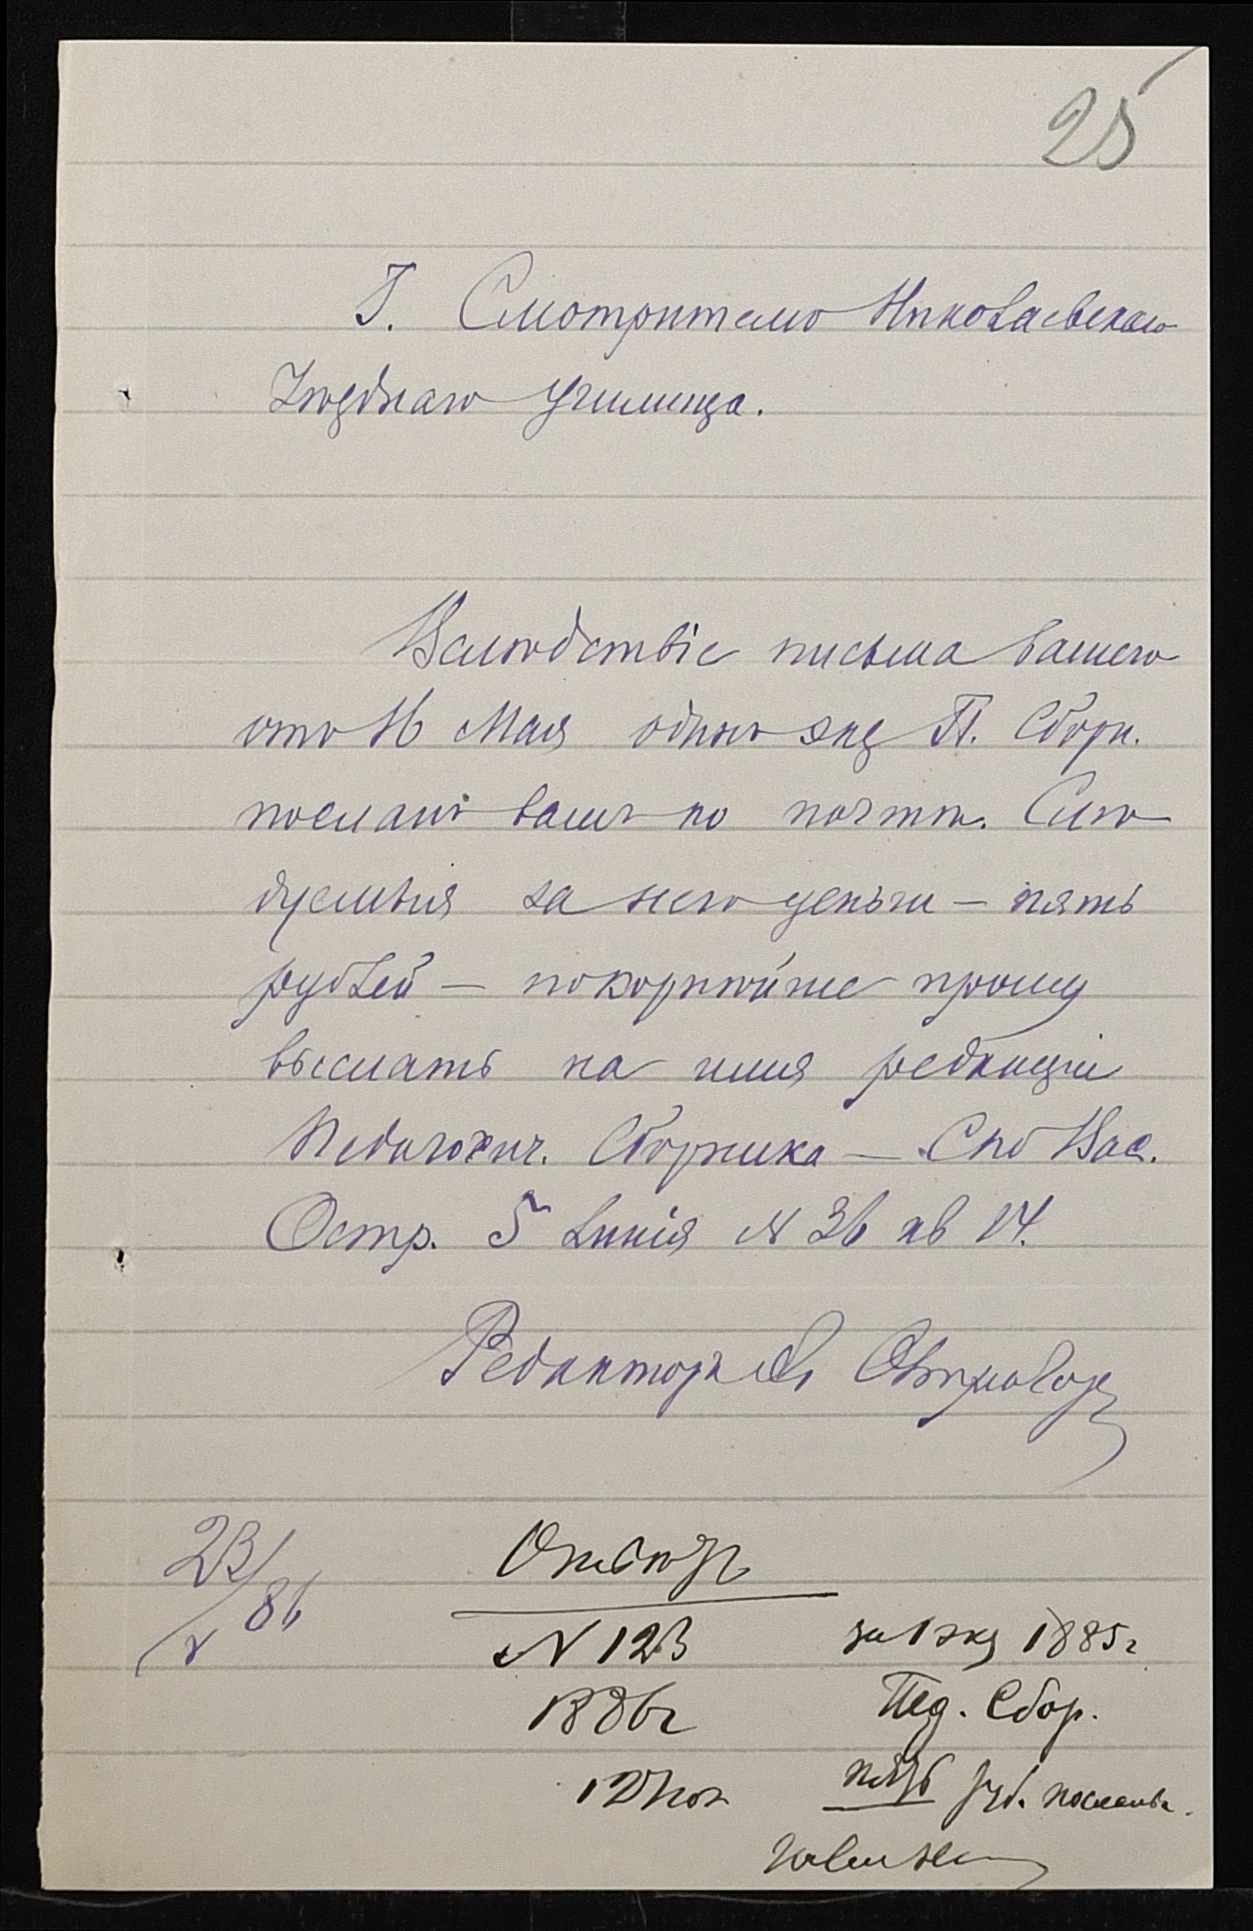 25
Г. Смотрителю Николаевскаго
Уѣзднаго училища.
Вслѣдствіе письма вашего
отъ 16 Мая одинъ экз П. Сборн.
посланъ вамъ по почтѣ. Слѣ
дуемыя за него деньги – пять
рублей – покорнѣйше прошу
выслать на имя редакціи
Педагогич. Сборника – Спб Вас.
Остр. 5 линія № 36 кв 14.
Редакторъ Ал Острогор
23/V 86
Отвѣтъ
№ 123 за 1 экз 1885 г
1886 г Пед. Сбор.
12 Іюн пять руб. посланы.